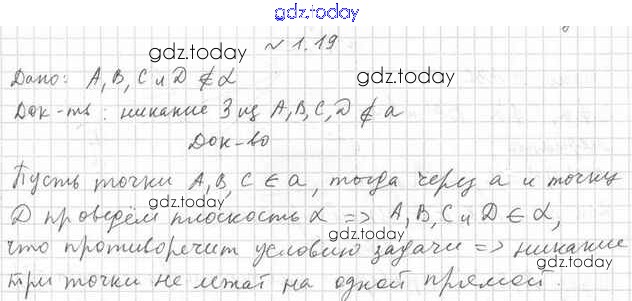 gdz.today
№ 1.19
gdz.today
gdz.today
Дано: A, B, C и D ∉ α
Док-ть: никакие 3 из A, B, C, D ∉ a
Док-во
Пусть точки A, B, C ∈ a, тогда через a и точку
gdz.today
D проведём плоскость α => A, B, C и D ∈ α,
gdz.today
что противоречит условию задачи => никакие
gdz.today
три точки не лежат на одной прямой.